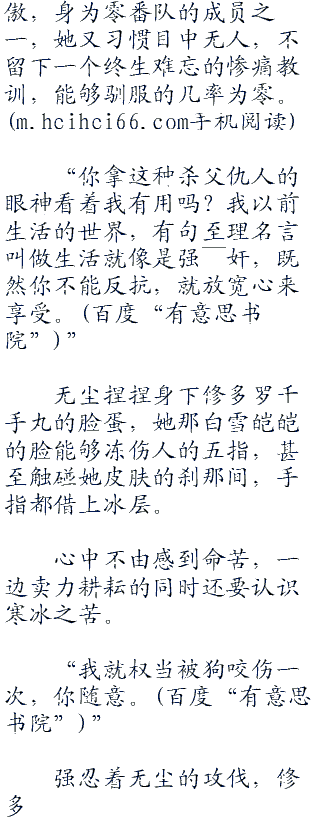 傲，身为零番队的成员之
一，她又习惯目中无人，不
留下一个终生难忘的惨痛教
训，能够驯服的几率为零。
(m.hcihci66.com手机阅读)
“你拿这种杀父仇人的
眼神看着我有用吗？我以前
生活的世界，有句至理名言
叫做生活就像是强￣奸，既
然你不能反抗，就放宽心来
享受。(百度“有意思书
院”)”
无尘捏捏身下修多罗千
手丸的脸蛋，她那白雪皑皑
的脸能够冻伤人的五指，甚
至触碰她皮肤的刹那间，手
指都借上冰层。
心中不由感到命苦，一
边卖力耕耘的同时还要认识
寒冰之苦。
“我就权当被狗咬伤一
次，你随意。(百度“有意思
书院”)”
强忍着无尘的攻伐，修
多